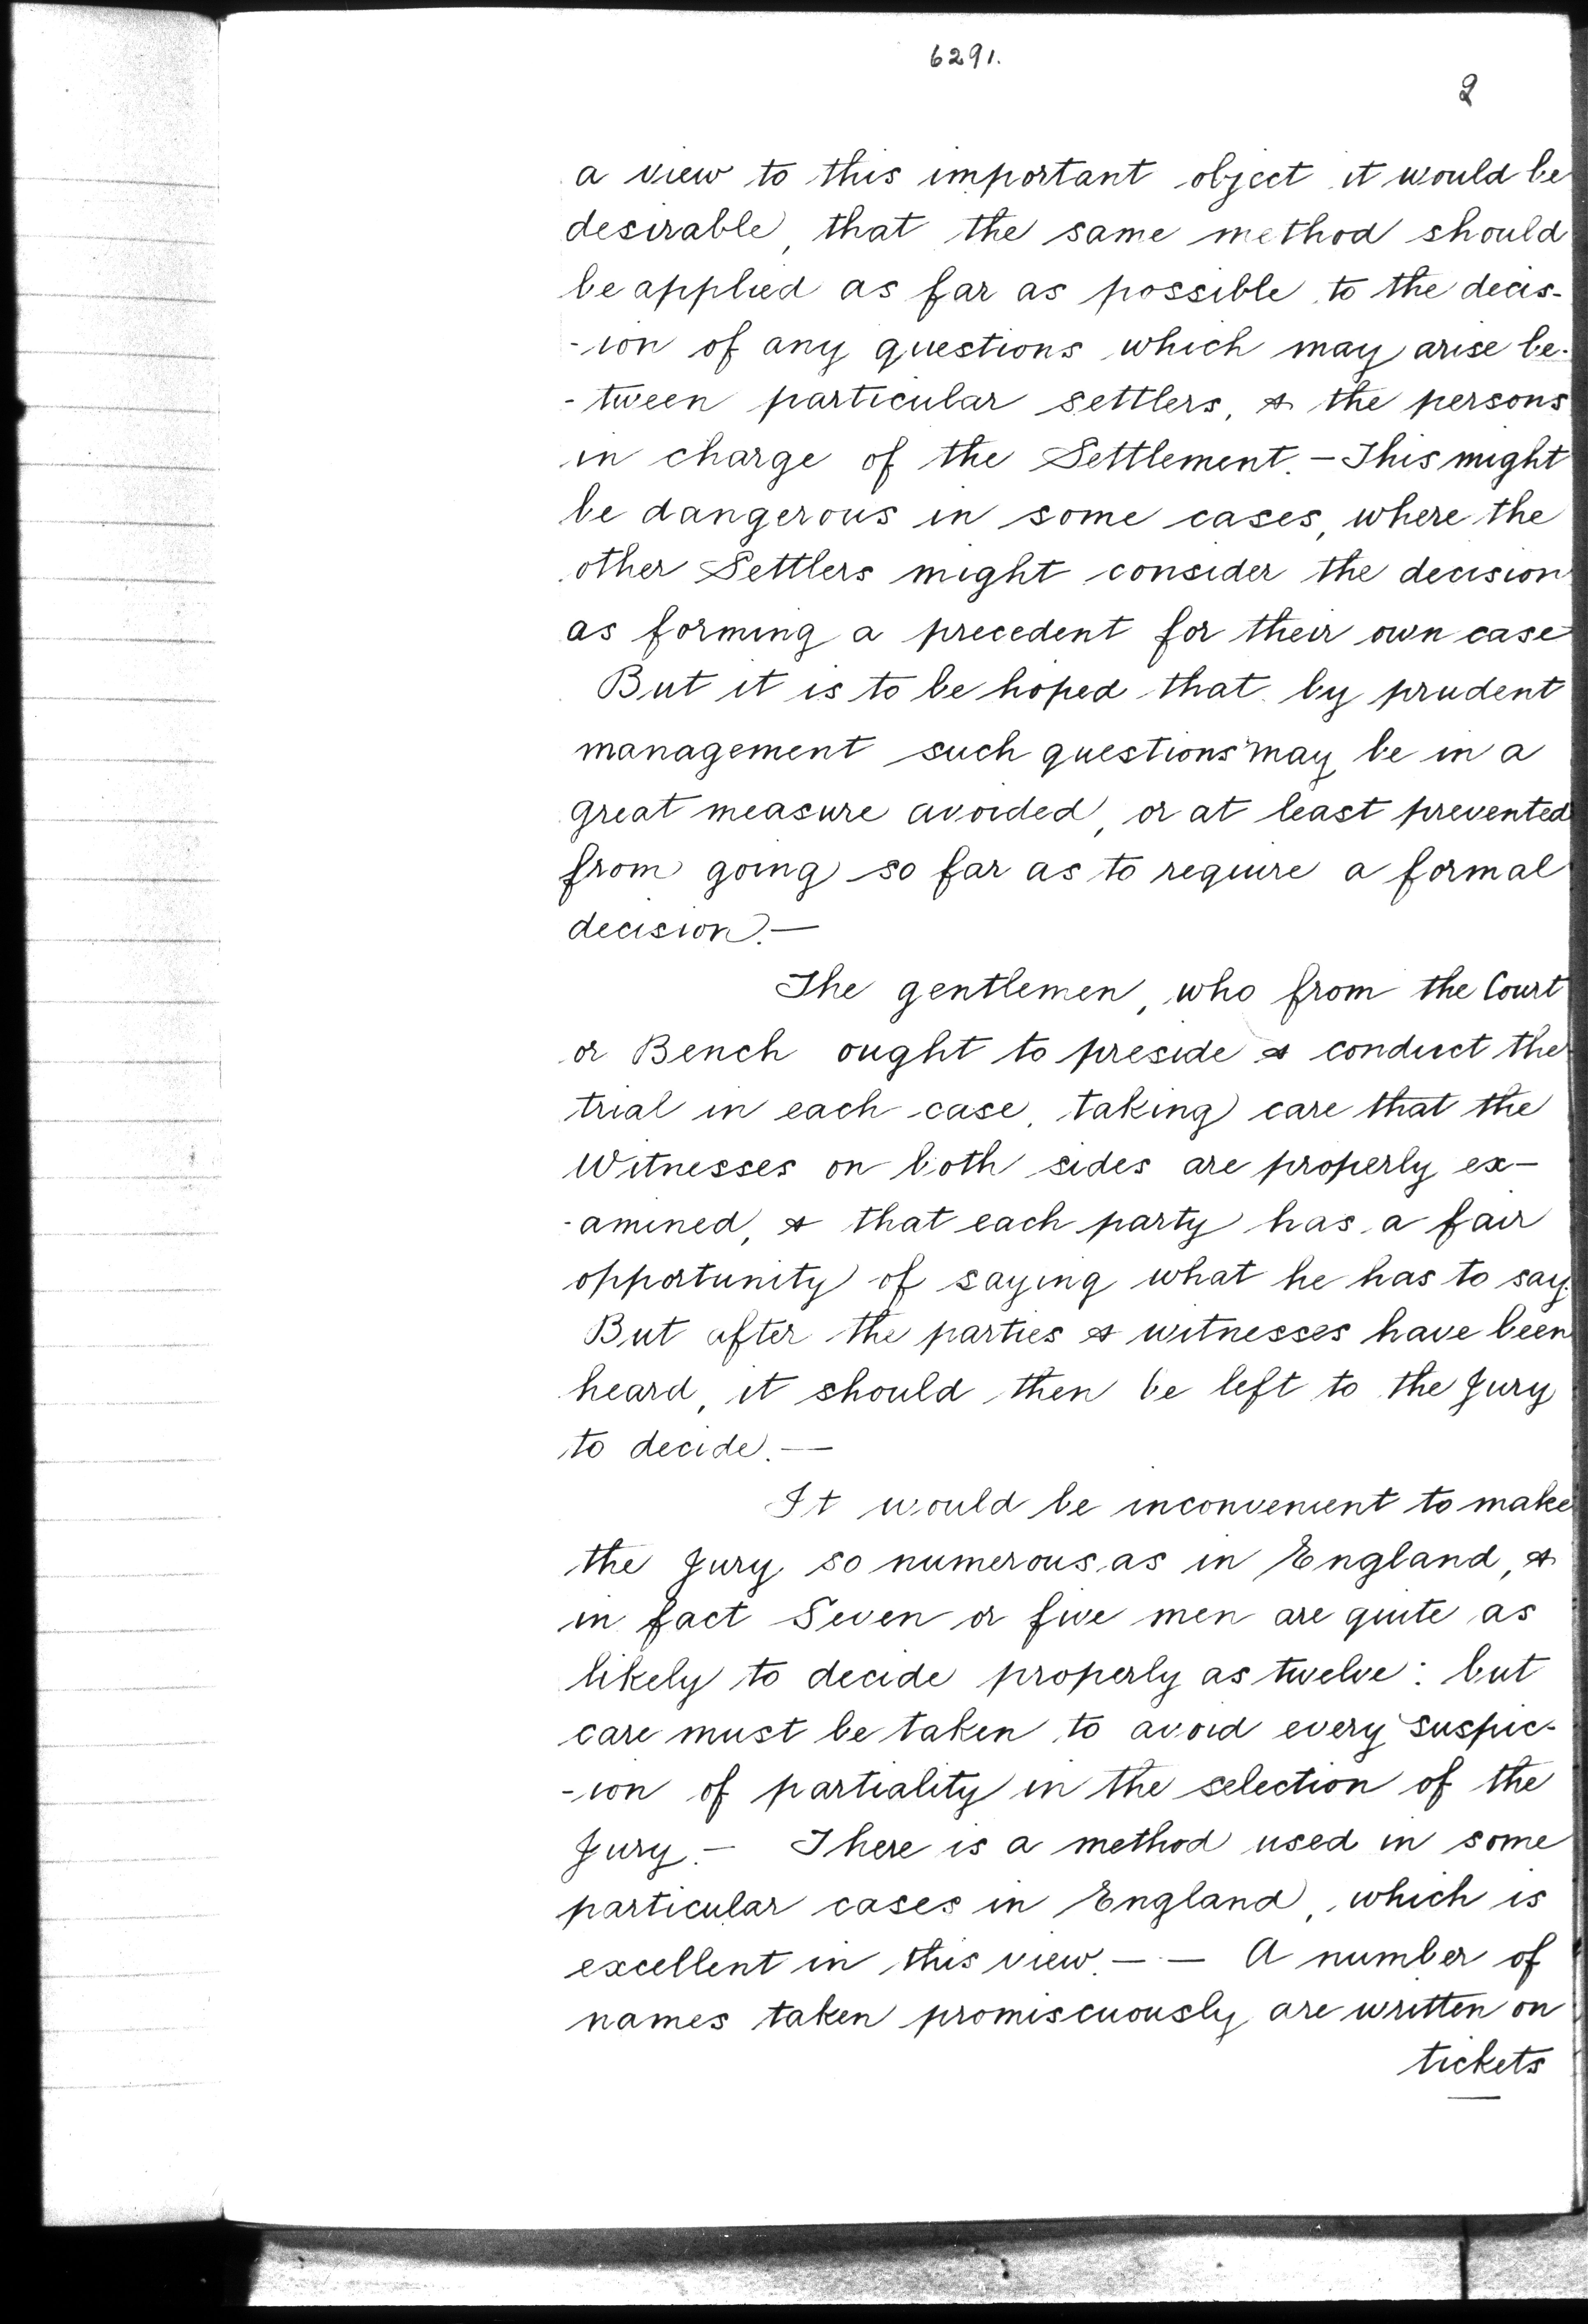 6291.
2
a view to this important object it would be
desirable, that the same method should
be applied as far as possible to the decis-
-ion of any questions which may arise be-
-tween particular settlers, & the persons
in charge of the Settlement. — This might
be dangerous in some cases, where the
other Settlers might consider the decision
as forming a precedent for their own case
But it is to be hoped that by prudent
management such questions may be in a
great measure avoided, or at least prevented
from going so far as to require a formal
decision. —
The gentlemen, who from the Court
or Bench ought to preside & conduct the
trial in each case, taking care that the
Witnesses on both sides are properly ex-
-amined, & that each party has a fair
opportunity of saying what he has to say.
But after the parties & witnesses have been
heard, it should then be left to the Jury
to decide. —
It would be inconvenient to make
the Jury so numerous as in England, &
in fact Seven or five men are quite as
likely to decide properly as twelve: but
care must be taken to avoid every suspic-
-ion of partiality in the selection of the
Jury. — There is a method used in some
particular cases in England, which is
excellent in this view. — — A number of
names taken promiscuously are written on
tickets